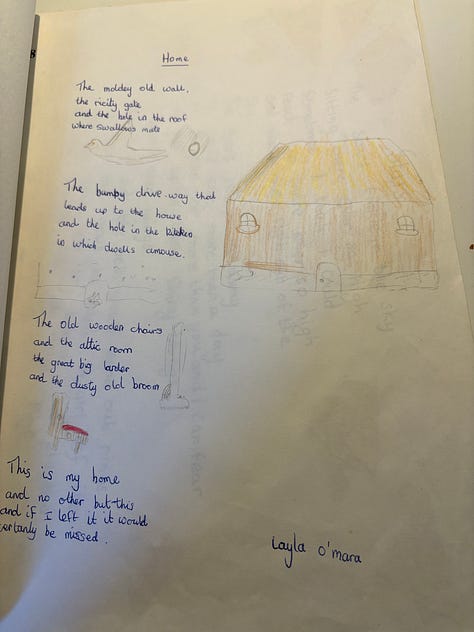 Home
The moldey old wall,
the ricity gate
and the hole in the roof
where swallows mate
The bumpy drive-way that
leads up to the house
and the hole in the kitchen
in which dwells amouse.
The old wooden chairs
and the attic room
the great big larder
and the dusty old broom
This is my home
and no other but this
and if I left it it would
certanly be missed.
Layla O'mara